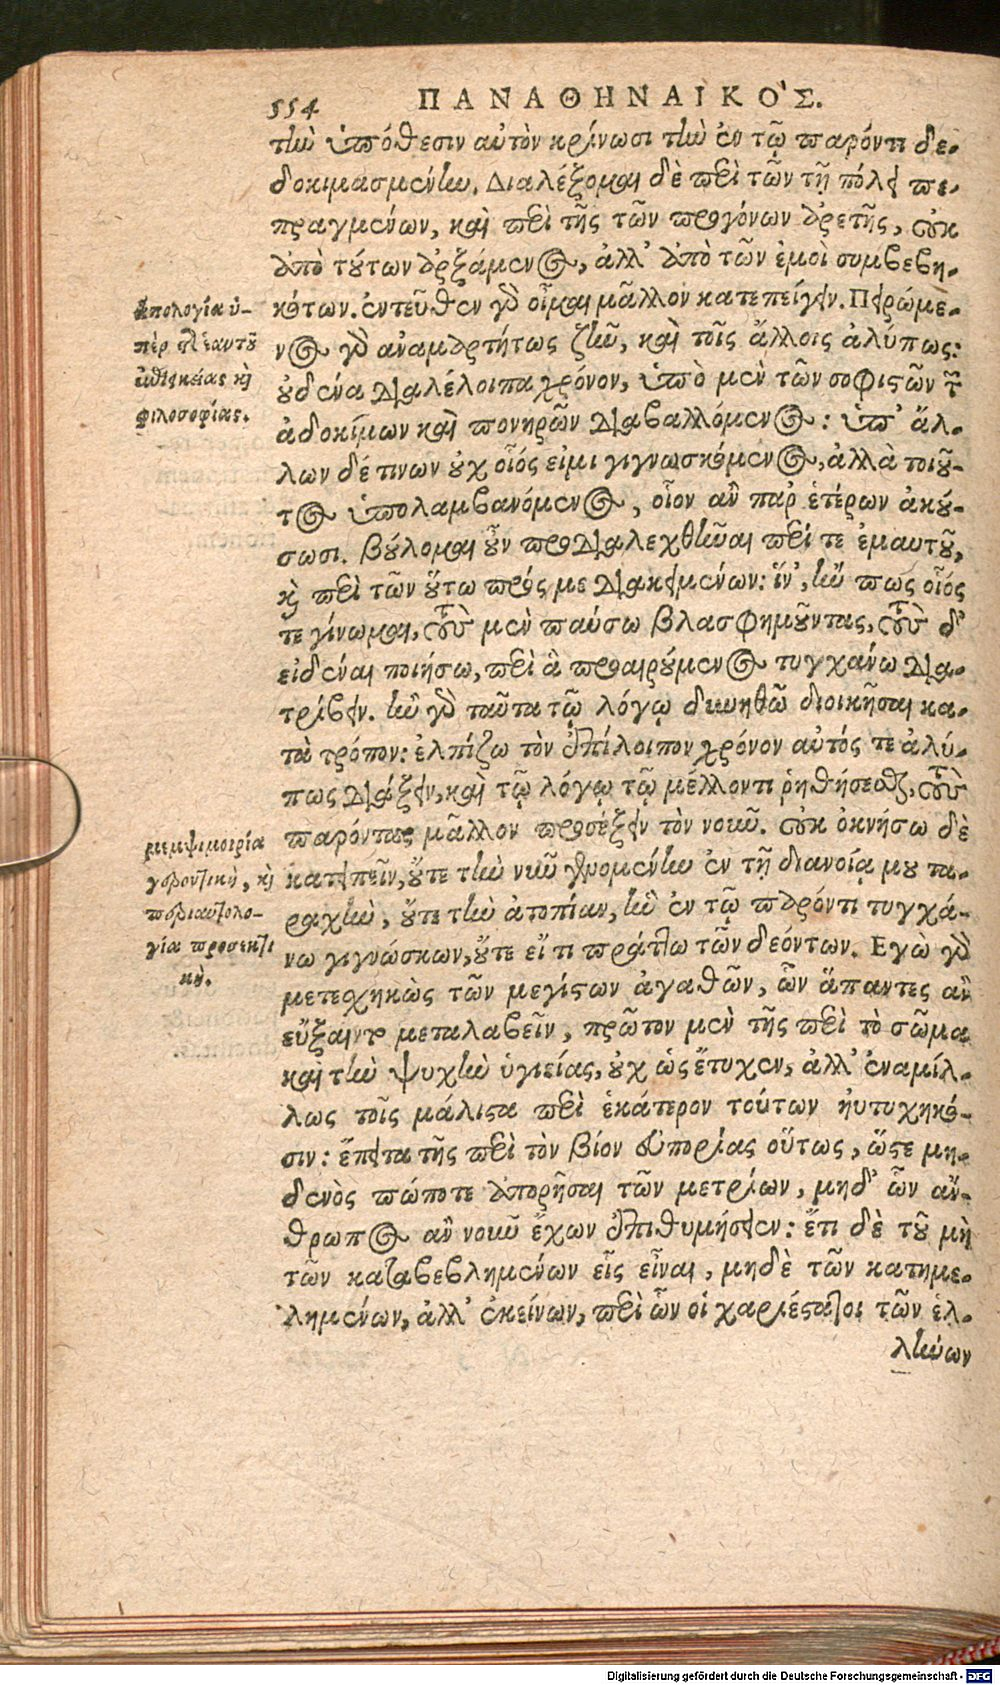 554 ΠΑΝΑΘΗΝΑΙΚΟ'Σ.
τὴν ὑπόθεσιν αὐτὸν κρίνωσι τὴν ἐν τῷ παρόντι δε-
δοκιμασμένην. Διαλέξομαι δὲ περὶ τῶν τῇ πόλει πε-
πραγμένων, καὶ περὶ τῆς τῶν προγόνων ἀρετῆς, οὐκ
ἀπὸ τούτων ἀρξάμενος, ἀλλ' ἀπὸ τῶν ἐμοὶ συμβεβη-
κότων. ἐντεῦθεν γὰρ οἶμαι μᾶλλον κατεπείγειν. Πειρώμε-
νος γὰρ ἀναμαρτήτως ζῆν, καὶ τοῖς ἄλλοις ἀλύπως:
οὐδένα διαλέλοιπα χρόνον, ὑπὸ μὲν τῶν σοφιστῶν τῶν
ἀδοκίμων καὶ πονηρῶν διαβαλλόμενος: ὑπ' ἄλ-
λων δέ τινων οὐχ οἷός εἰμι γιγνωσκόμενος, ἀλλὰ τοιοῦ-
τος ὑπολαμβανόμενος, οἷον ἂν παρ' ἑτέρων ἀκού-
σωσι. βούλομαι οὖν προδιαλεχθῆναι περί τε ἐμαυτοῦ,
καὶ περὶ τῶν οὕτω πρός με διακειμένων: ἵν', ἤν πως οἷός
τε γίνωμαι, τοὺς μὲν παύσω βλασφημοῦντας, τοὺς δ'
εἰδέναι ποιήσω, περὶ ἃ προαιρούμενος τυγχάνω δια-
τρίβειν. ἢν γὰρ ταῦτα τῷ λόγῳ δυνηθῶ διοικῆσαι κα-
τὰ τρόπον: ἐλπίζω τὸν ἐπίλοιπον χρόνον αὐτός τε ἀλύ-
πως διάξειν, καὶ τῷ λόγῳ τῷ μέλλοντι ῥηθήσεσθαι, τοὺς
παρόντας μᾶλλον προσέξειν τὸν νοῦν. οὐκ ὀκνήσω δὲ
κατειπεῖν, οὔτε τὴν νῦν ἐγγινομένην ἐν τῇ διανοίᾳ μου τα-
ραχὴν, οὔτε τὴν ἀτοπίαν, ἣν ἐν τῷ παρόντι τυγχά-
νω γιγνώσκων, οὔτε εἴ τι πράττω τῶν δεόντων. Εγὼ γὰρ
μετεσχηκὼς τῶν μεγίστων ἀγαθῶν, ὧν ἅπαντες ἂν
εὔξαιντο μεταλαβεῖν, πρῶτον μὲν τῆς περὶ τὸ σῶμα
καὶ τὴν ψυχὴν ὑγιείας, οὐχ ὡς ἔτυχεν, ἀλλ' ἐναμίλ-
λως τοῖς μάλιστα περὶ ἑκάτερον τούτων ηὐτυχηκό-
σιν: ἔπειτα τῆς περὶ τὸν βίον εὐπορίας οὕτως, ὥστε μη-
δενὸς πώποτε ἀπορῆσαι τῶν μετρίων, μηδ' ὧν ἄν-
θρωπος ἂν νοῦν ἔχων ἐπιθυμήσειεν: ἔτι δὲ τοῦ μὴ
τῶν καταβεβλημένων εἷς εἶναι, μηδὲ τῶν κατημε-
λημένων, ἀλλ' ἐκείνων, περὶ ὧν οἱ χαριέστατοι τῶν ἑλ-
λήνων
Απολογία ὑ-
πὲρ τῆς ἑαυτοῦ
ἐπιεικείας καὶ
φιλοσοφίας.
μεμψιμοιρία
γεροντικὴ, καὶ
περιαυτολο-
γία προσεκτι
κὴ.
Digitalisierung gefördert durch die Deutsche Forschungsgemeinschaft - DFG